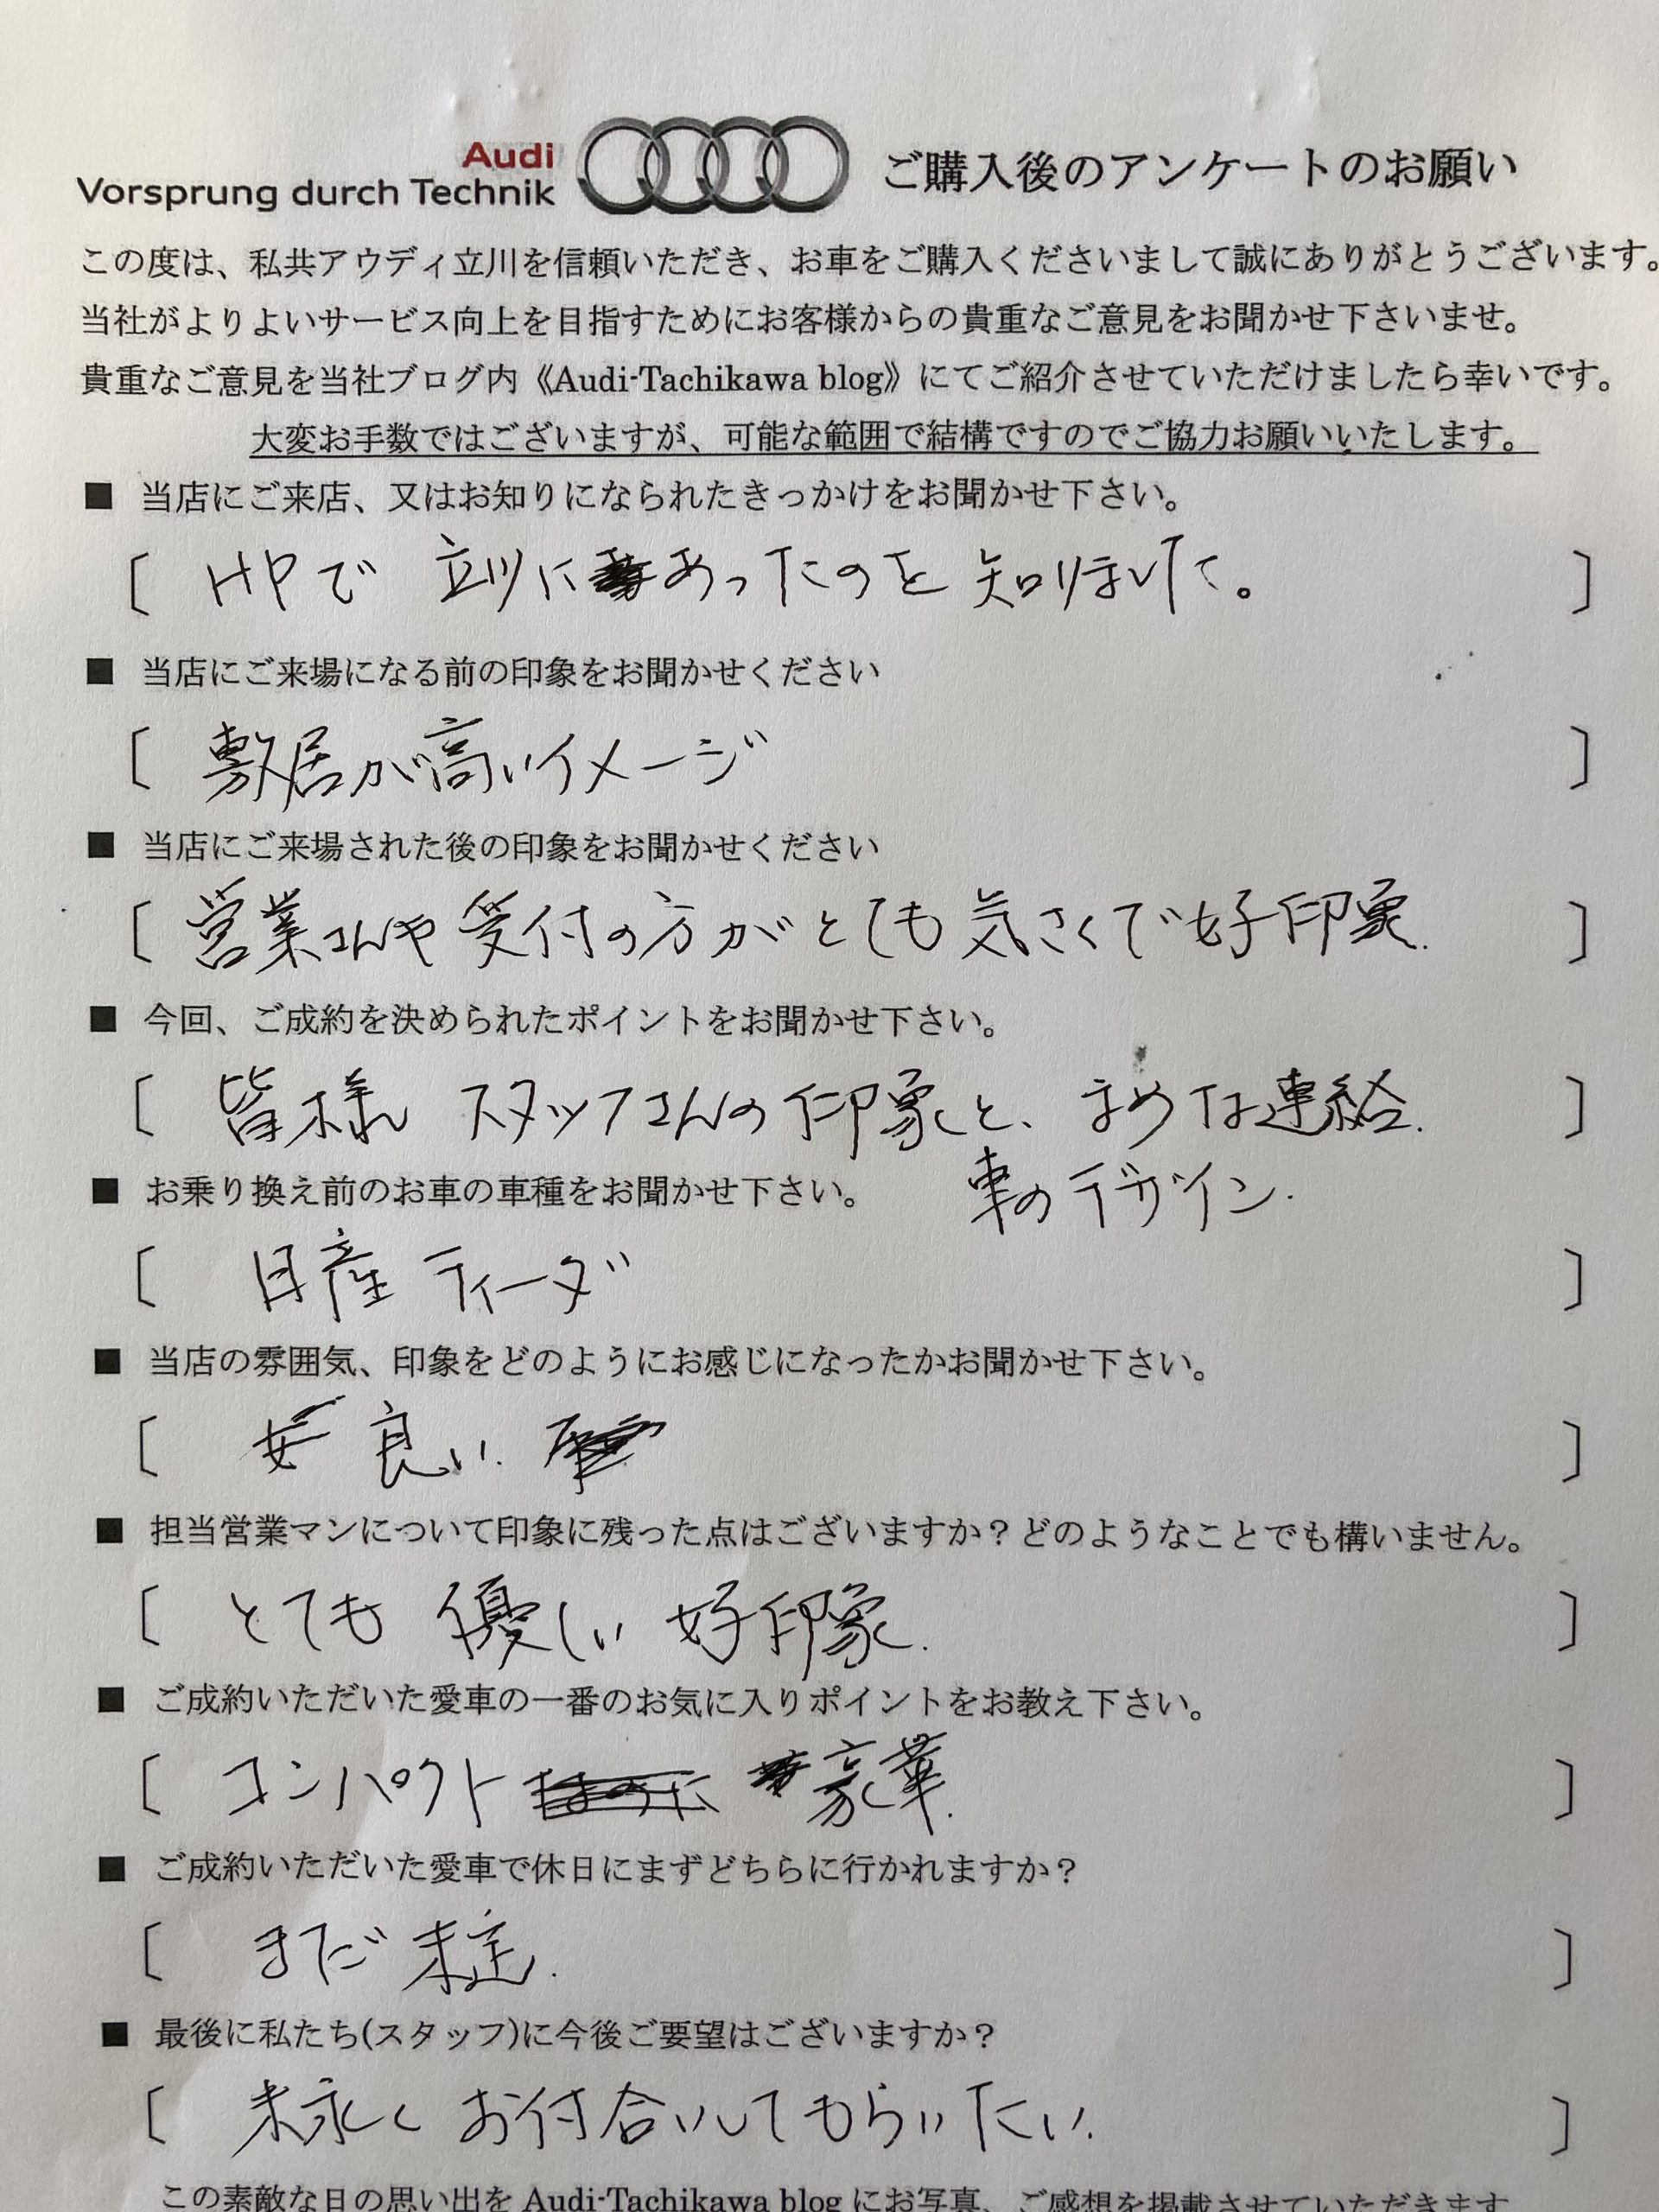 Audi
Vorsprung durch Technik
ご購入後のアンケートのお願い
この度は、私共アウディ立川を信頼いただき、お車をご購入くださいまして誠にありがとうございます。
当社がよりよいサービス向上を目指すためにお客様からの貴重なご意見をお聞かせ下さいませ。
貴重なご意見を当社ブログ内《Audi-Tachikawa blog》にてご紹介させていただけましたら幸いです。
大変お手数ではございますが、可能な範囲で結構ですのでご協力お願いいたします。
■ 当店にご来店、又はお知りになられたきっかけをお聞かせ下さい。
〔 HPで 立川にあったのを 知りました。 〕
■ 当店にご来場になる前の印象をお聞かせください
〔 敷居が高いイメージ 〕
■ 当店にご来場された後の印象をお聞かせください
〔 営業さんや受付の方がとても気さくで好印象. 〕
■ 今回、ご成約を決められたポイントをお聞かせ下さい。
〔 皆様 スタッフさんの印象と、まめな連絡. 〕
車のデザイン.
■ お乗り換え前のお車の車種をお聞かせ下さい。
〔 日産 ティーダ 〕
■ 当店の雰囲気、印象をどのようにお感じになったかお聞かせ下さい。
〔 良い. 〕
■ 担当営業マンについて印象に残った点はございますか？どのようなことでも構いません。
〔 とても 優しい 好印象. 〕
■ ご成約いただいた愛車の一番のお気に入りポイントをお教え下さい。
〔 コンパクト なのに 豪華. 〕
■ ご成約いただいた愛車で休日にまずどちらに行かれますか？
〔 まだ 未定. 〕
■ 最後に私たち(スタッフ)に今後ご要望はございますか？
〔 末永く お付合いしてもらいたい. 〕
この素敵な日の思い出を Audi-Tachikawa blog にお写真、ご感想を掲載させていただきます